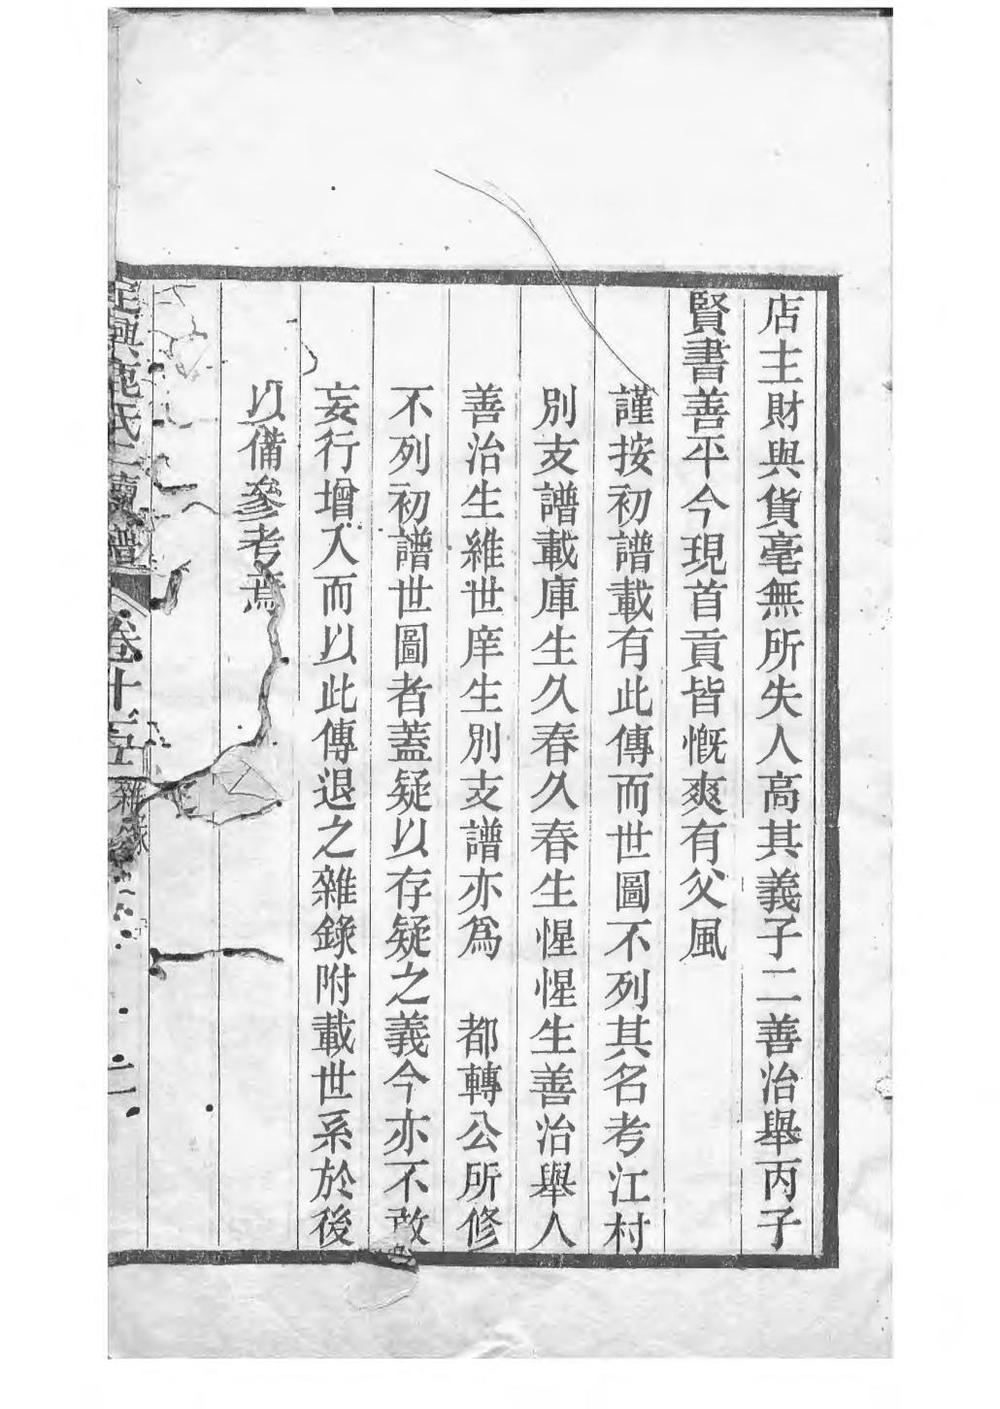 店主財與貨毫無所失人高其義子二善治舉丙子
賢書善平今現首貢皆慨爽有父風
謹按初譜載有此傳而世圖不列其名考江村
別支譜載庫生久春久春生惺惺生善治舉人
善治生維世庠生別支譜亦為　都轉公所修
不列初譜世圖者蓋疑以存疑之義今亦不敢
妄行增入而以此傳退之雜錄附載世系於後
以備參考焉
定興鹿氏二續譜　卷十五　雜錄　二